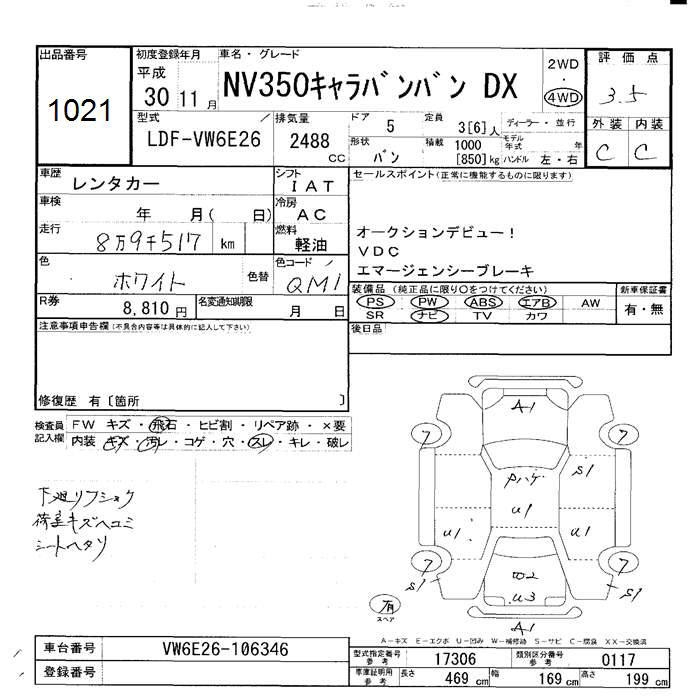 出品番号
1021
初度登録年月
平成
30 11月
車名・グレード
NV350キャラバンバン DX
2WD
・
4WD
評価点
3.5
外装 内装
C C
型式
LDF-VW6E26
排気量
2488
CC
ドア
5
定員
3[6]人
形状
バン
積載
1000
[850]kg
ディーラー・並行
モデル年式 年
ハンドル 左・右
車歴
レンタカー
シフト
IAT
車検
年 月( 日)
冷房
AC
走行
8万9千517 km
燃料
軽油
色
ホワイト
色替
色コード
QM1
R券
8,810円
名変通知期限
月 日
セールスポイント(正常に機能するものに限ります)
オークションデビュー!
VDC
エマージェンシーブレーキ
装備品(純正品に限り○をつけてください)
PS PW ABS エアB AW
SR ナビ TV カワ
新車保証書
有・無
後日品
注意事項申告欄(不具合内容等は具体的に記入して下さい)
修復歴 有〔箇所 〕
検査員
記入欄
FW キズ・飛石・ヒビ割・リペア跡・×要
内装 キズ・汚レ・コゲ・穴・スレ・キレ・破レ
下廻リフショク
荷室キズヘコミ
シートヘタリ
A1
7 7
S1
Pハゲ
U1
U1 U1
7 7
S1 S1
U3
A1
有
スペア
A-キズ E-エクボ U-凹み W-補修跡 S-サビ C-腐食 XX-交換済
車台番号
VW6E26-106346
登録番号
型式指定番号
参考
17306
類別区分番号
参考
0117
車庫証明用
参考
長さ
469 cm
幅
169 cm
高さ
199 cm